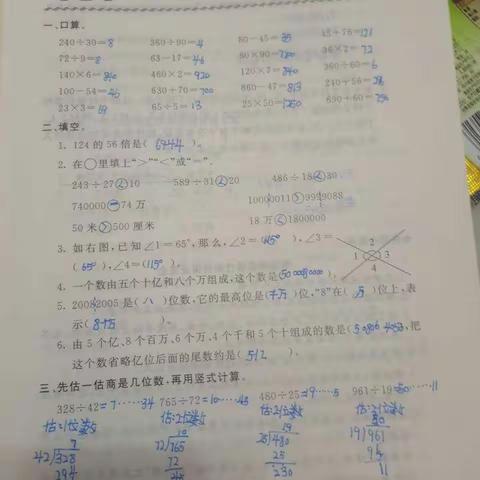 一、口算。
240÷30=8 360÷90=4 80-45=35 45+76=121
72÷9=8 63-17=46 80×90=7200 36×2=72
140×6=840 460×2=920 120×7=840 360÷60=6
100-54=46 630+70=700 860-47=813 240+56=296
23×3=69 65÷5=13 25×50=1250 690+60=750
二、填空。
1. 124的56倍是( 6944 )。
2. 在○里填上“>”“<”或“=”。
243÷27<10 589÷31<20 486÷18<30
740000=74万 10000011>9999088
50米>500厘米 18万<1800000
3. 如右图,已知∠1=65°,那么,∠2=(115°),∠3=
(65°),∠4=(115°)。
1 2 3 4
4. 一个数由五个十亿和八个万组成,这个数是(5000080000)。
5. 20082005是(八)位数,它的最高位是(千万)位,“8”在(万)位上,表
示(8个万)。
6. 由5个亿、8个百万、6个万、4个千和5个十组成的数是( ),把
这个数省略亿位后面的尾数约是(5亿)。
三、先估一估商是几位数,再用竖式计算。
328÷42=7……34 765÷72=10……45 480÷25=19……5 961÷19=50……11
估:1位数 估:2位数 估:2位数 估:2位数
7 10 19 50
42 328 72 765 25 480 19 961
294 72 25 95
45 230 11